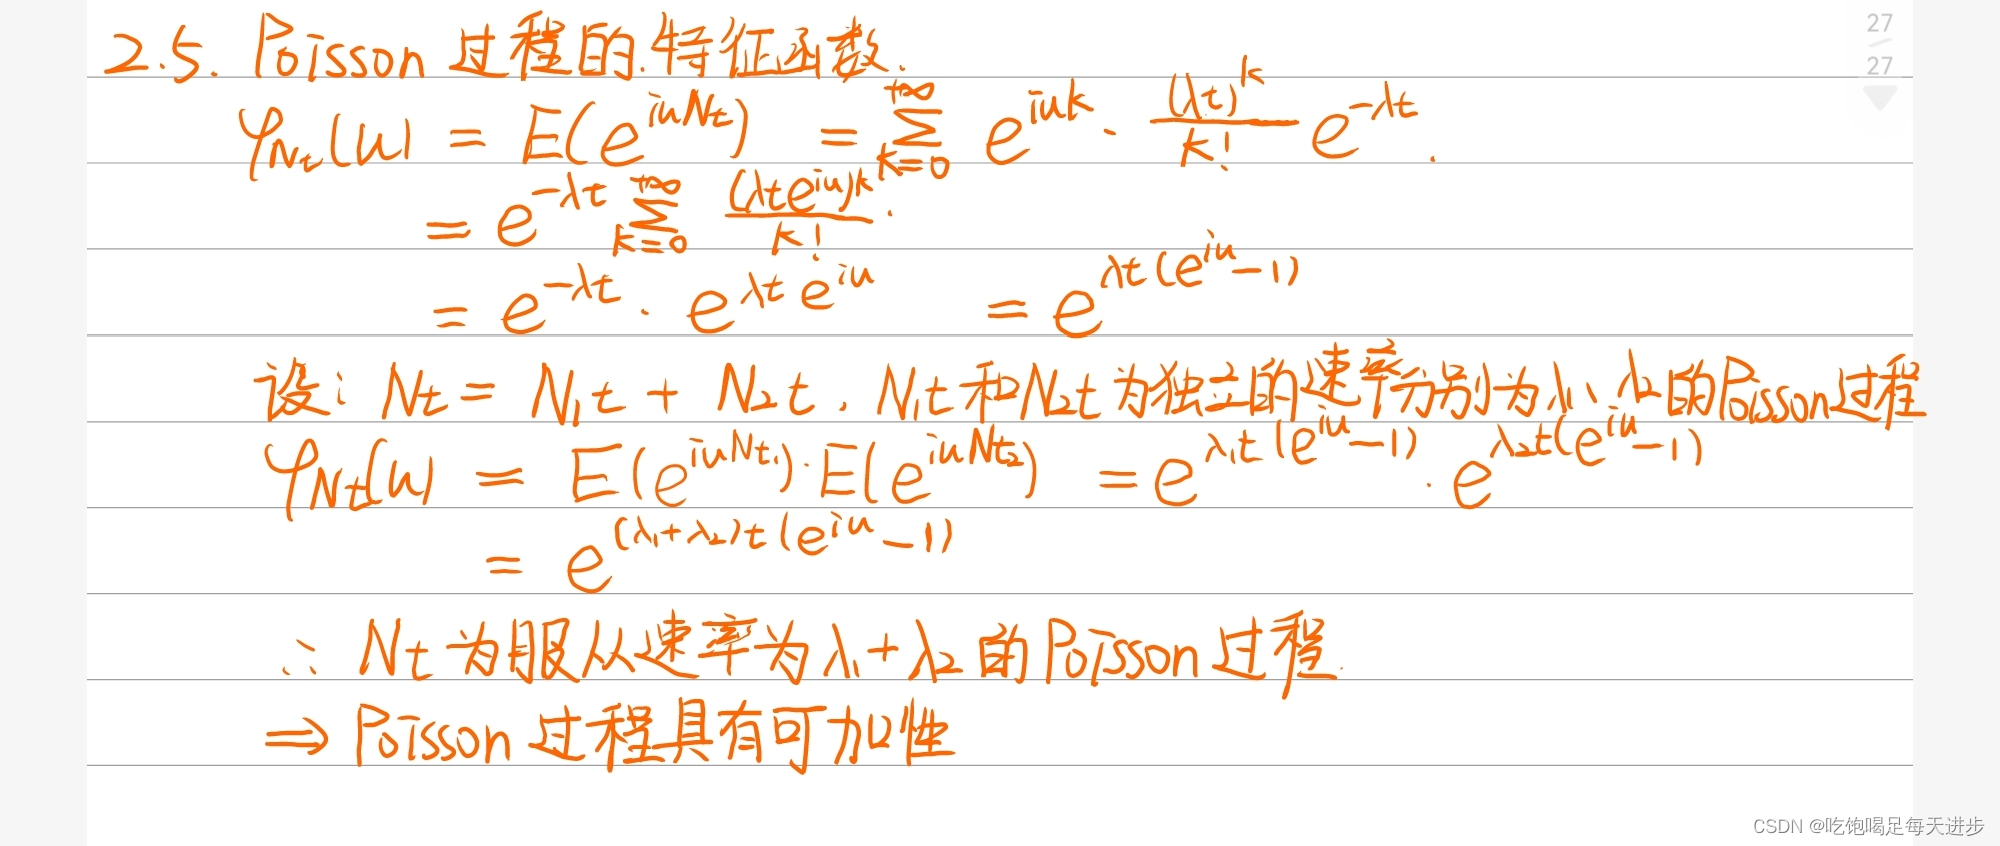 2.5. Poisson 过程的特征函数.
27
27
φ_{Nt}(u) = E(e^{iuNt}) = ∑_{k=0}^{+∞} e^{iuk} · \frac{(λt)^k}{k!} e^{-λt}.
= e^{-λt} ∑_{k=0}^{+∞} \frac{(λte^{iu})^k}{k!}.
= e^{-λt} · e^{λte^{iu}} = e^{λt(e^{iu}-1)}
设: Nt = N₁t + N₂t. N₁t和N₂t为独立的速率分别为λ₁、λ₂的Poisson过程
φ_{Nt}(u) = E(e^{iuNt₁})·E(e^{iuNt₂}) = e^{λ₁t(e^{iu}-1)} · e^{λ₂t(e^{iu}-1)}
= e^{(λ₁+λ₂)t(e^{iu}-1)}
∴ Nt为服从速率为λ₁+λ₂的Poisson过程.
⇒ Poisson过程具有可加性
CSDN @吃饱喝足每天进步